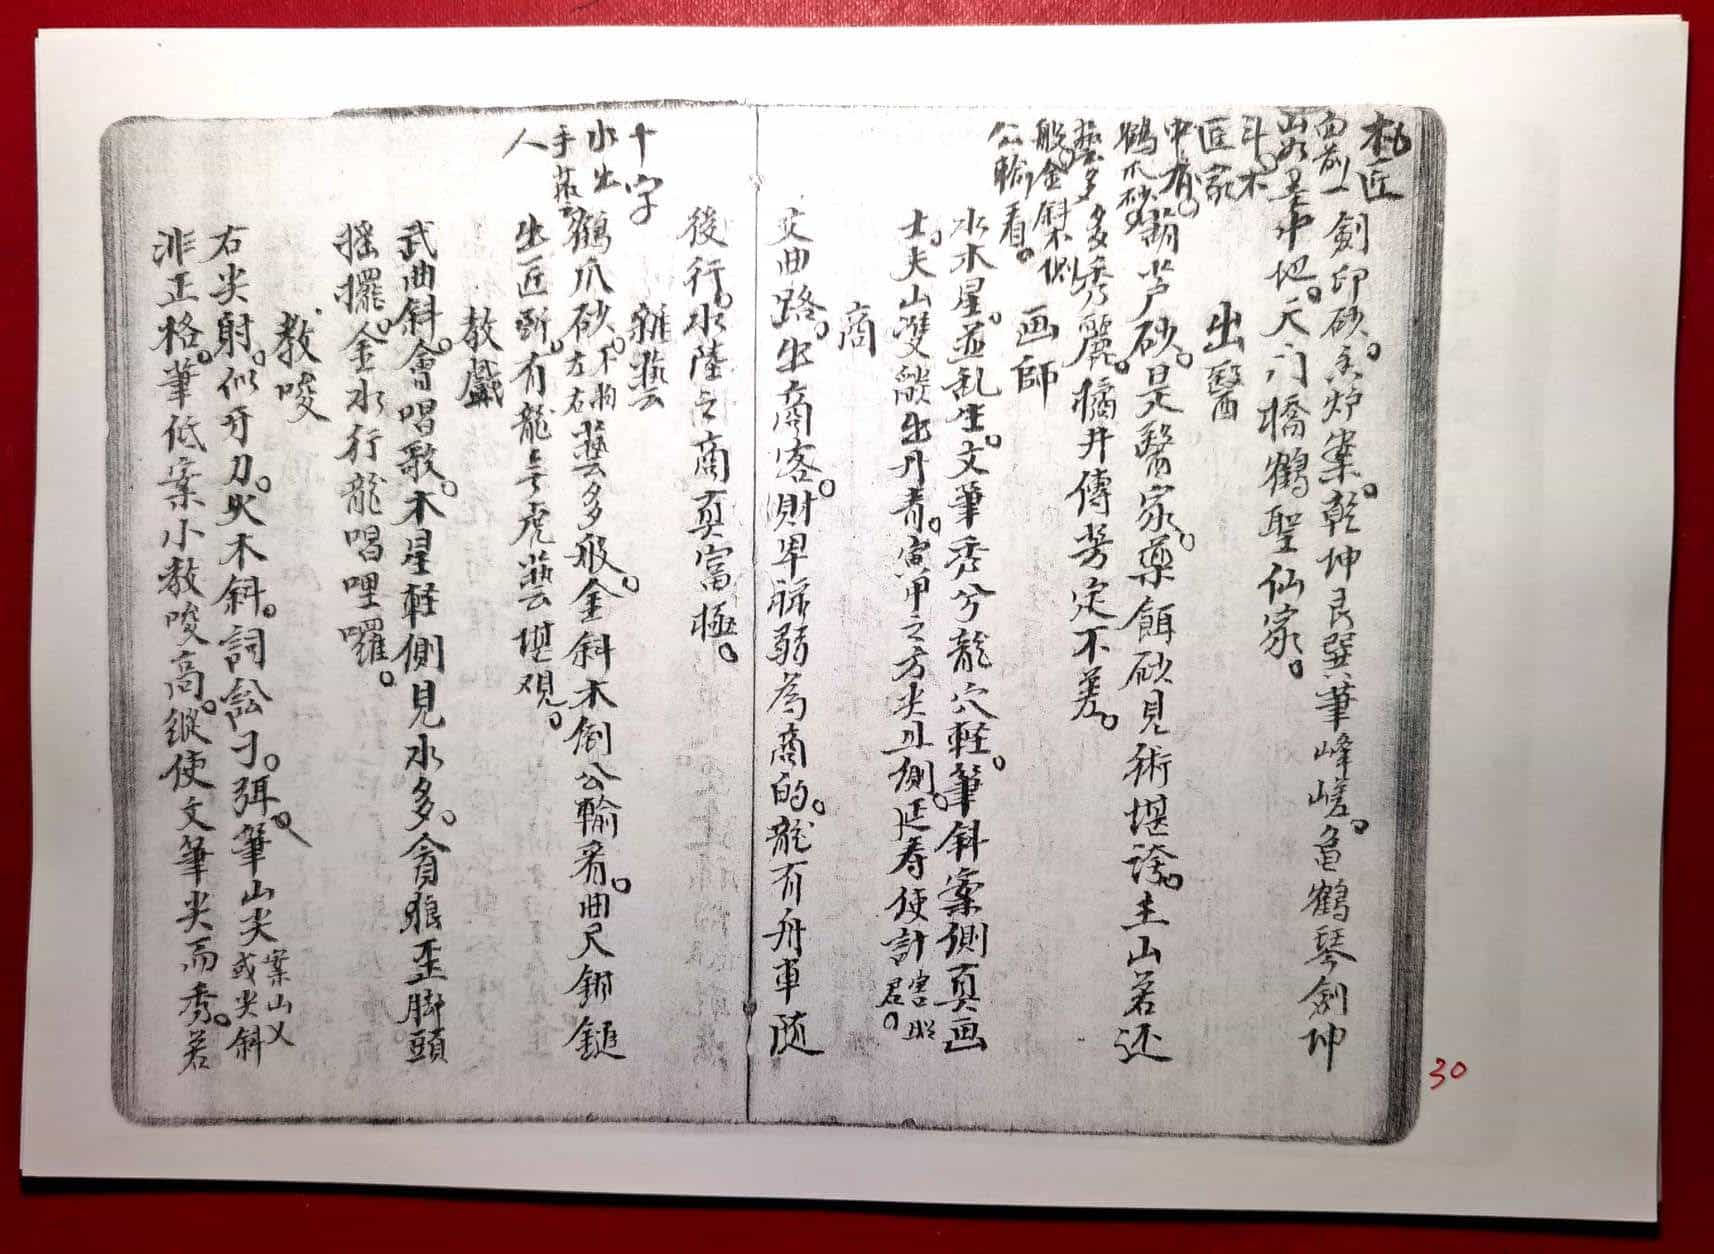 木匠
面前一
山如
斗。木
匠家
中有。
鶴爪砂
藝多
般。金斜木側
公輸看。
劍印砂。香炉案。乾坤艮巽筆峰嵯。龜鶴琴劍坤
中地。天门橋鶴聖仙家。
出醫
葫芦砂。是醫家。藥餌砂見術堪誇。土山若还
多秀麗。橘井傳芳定不差。
画師
水木星。並乱生。文筆秀兮龍穴輕。筆斜案側真画
士。夫山雙䶬出丹青。寅甲之方尖且側。延寿使計害昭君。
商
文曲路。出商客。財卑脉弱為商的。龍有舟車随
後行。水陸之商真富極。
雜藝
十字
水出
手藝
人
鶴爪砂。不拘左右藝多般。金斜木倒公輸看。曲尺鋼鎚
出匠斲。有龍无虎藝堪观。
教戲
武曲斜。會唱歌。木星輕側見水多。貪狼歪脚頭
摇擺。金水行龍唱哩囉。
教唆
右尖射。似牙刀。火木斜。詞訟刁。弭筆山尖案山乂或尖斜
非正格。筆低案小教唆高。縱使文筆尖而秀。若
30